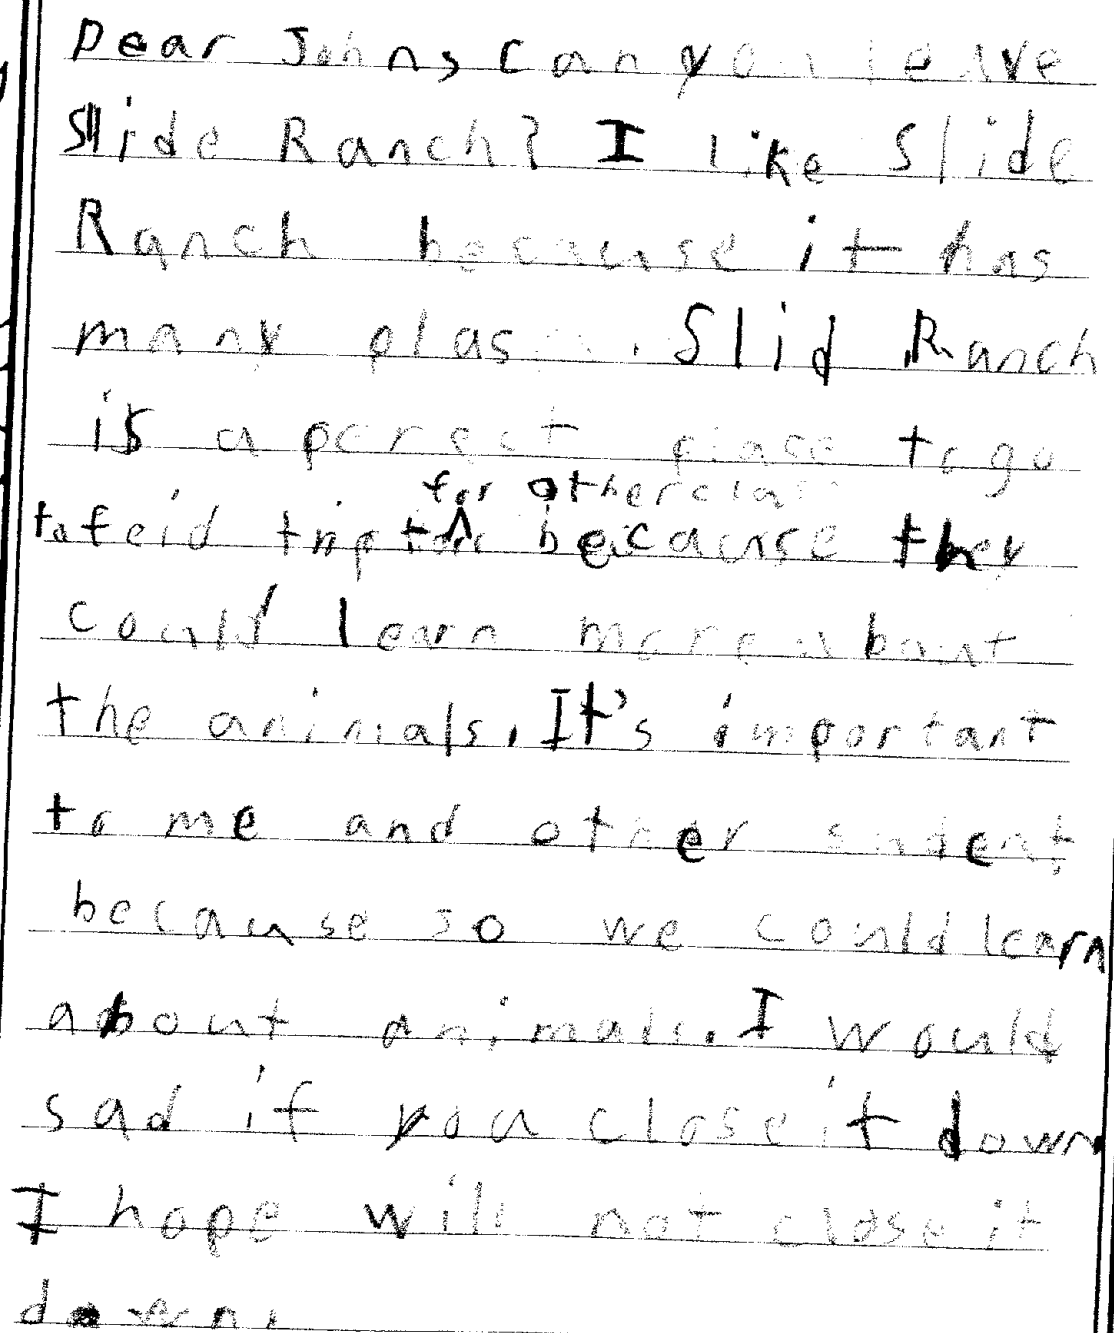 Dear John, Can you leave
Slide Ranch? I like Slide
Ranch because it has
many plas . Slid Ranch
is a perfect place to go
for other clas
to feid trip for because they
could learn more about
the animals. It's important
to me and other student,
because so we could learn
about animals. I would
sad if you close it down
I hope will not close it
down.